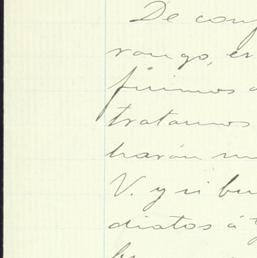 De conf
rango, en
finimos a
tratamos
harán m
V. y si bu
diatos á